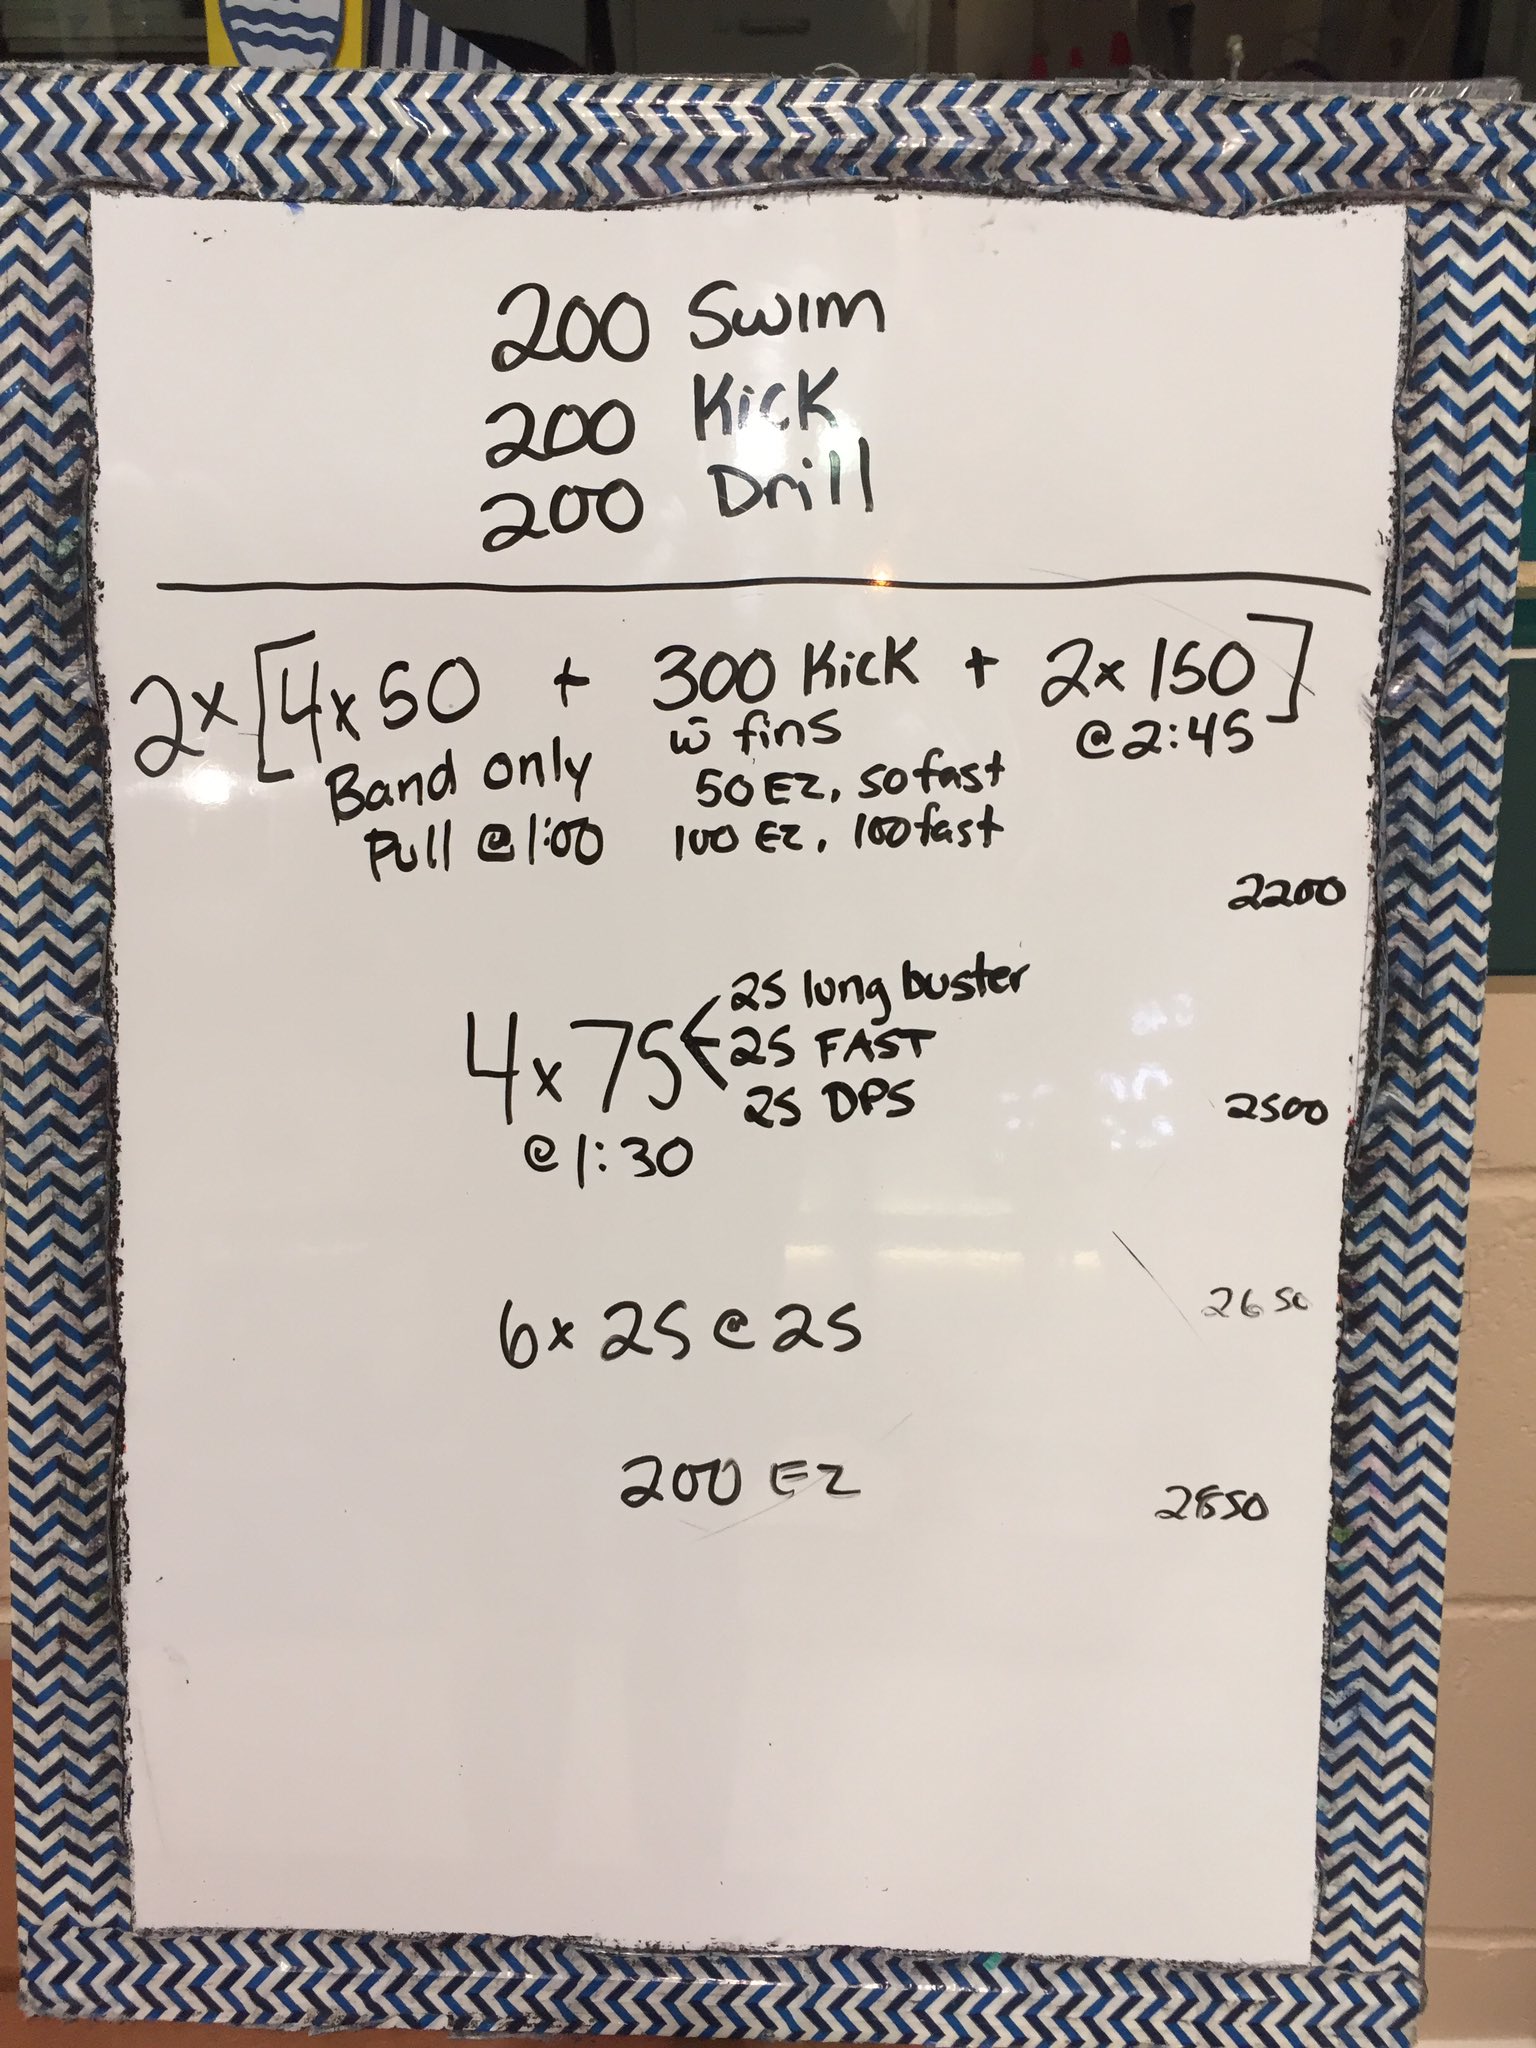 200 Swim
200 Kick
200 Drill
2x [4x50 + 300 Kick + 2x 150]
Band only
Pull @ 1:00
w̄ fins
50 EZ, 50 fast
100 EZ, 100 fast
@ 2:45
2200
4x75
25 lung buster
25 FAST
25 DPS
@ 1:30
2500
6x 25 @ 25
2650
200 EZ
2850